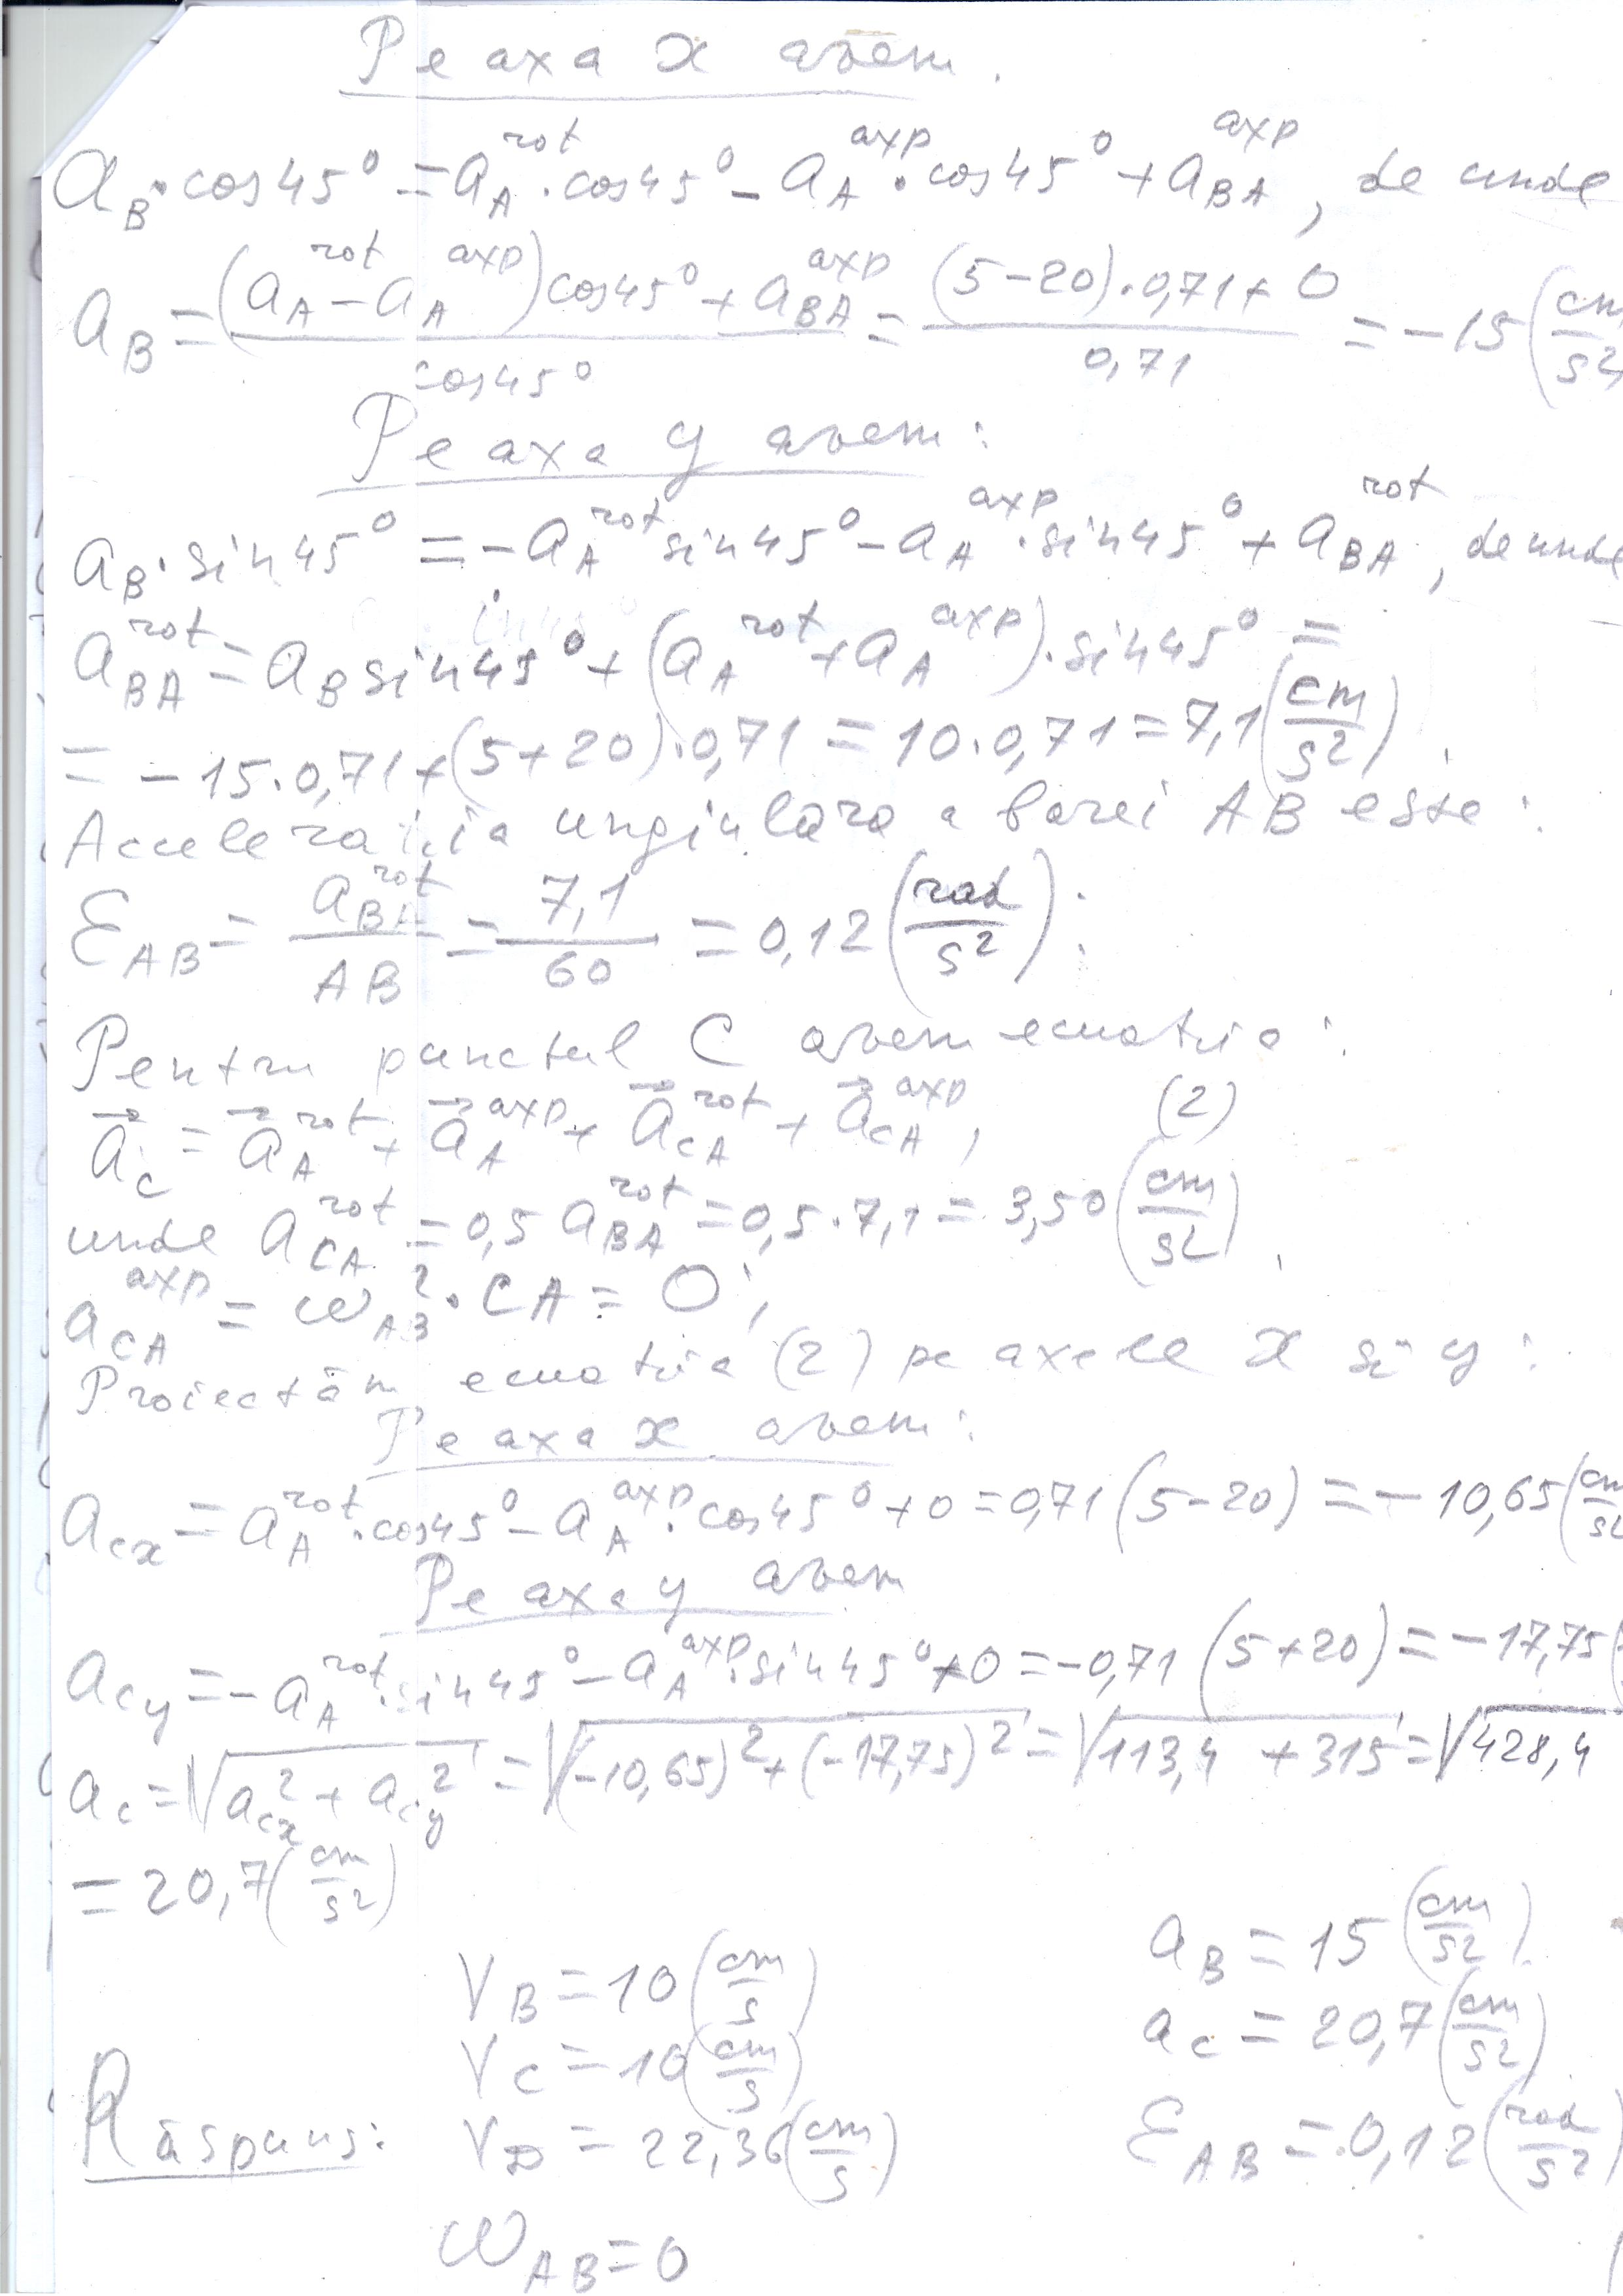 Pe axa x avem.
a_B · cos45° = a_A^rot · cos45° - a_A^axp · cos45° + a_BA^axp, de unde
a_B = ((a_A^rot - a_A^axp) cos45° + a_BA^axp) / cos45° = ((5-20)·0,71+0) / 0,71 = -15 (cm/s²
Pe axa y avem:
a_B · sin45° = -a_A^rot sin45° - a_A^axp · sin45° + a_BA^rot, de unde
a_BA^rot = a_B sin45° + (a_A^rot + a_A^axp) · sin45° =
= -15·0,71+(5+20)·0,71 = 10·0,71 = 7,1 (cm/s²).
Acceleratiia ungiulara a barei AB este:
ε_AB = a_BA^rot / AB = 7,1 / 60 = 0,12 (rad/s²);
Pentru punctul C avem ecuatia:
a⃗_C = a⃗_A^rot + a⃗_A^axp + a⃗_CA^rot + a⃗_CA^axp, (2)
unde a_CA^rot = 0,5 a_BA^rot = 0,5·7,1 = 3,50 (cm/s²),
a_CA^axp = ω_AB² · CA = 0;
Proiectăm ecuatia (2) pe axele x si y:
Pe axa x avem:
a_cx = a_A^rot · cos45° - a_A^axp · cos45° + 0 = 0,71 (5-20) = -10,65 (cm/s²
Pe axa y avem
a_cy = -a_A^rot · sin45° - a_A^axp · sin45° + 0 = -0,71 (5+20) = -17,75 (
a_c = √(a_cx² + a_cy²) = √((-10,65)² + (-17,75)²) = √(113,4 + 315) = √428,4
= 20,7 (cm/s²)
V_B = 10 (cm/s) a_B = 15 (cm/s²).
V_C = 10 (cm/s) a_C = 20,7 (cm/s²)
Răspuns: V_D = 22,36 (cm/s) ε_AB = 0,12 (rad/s²)
ω_AB = 0